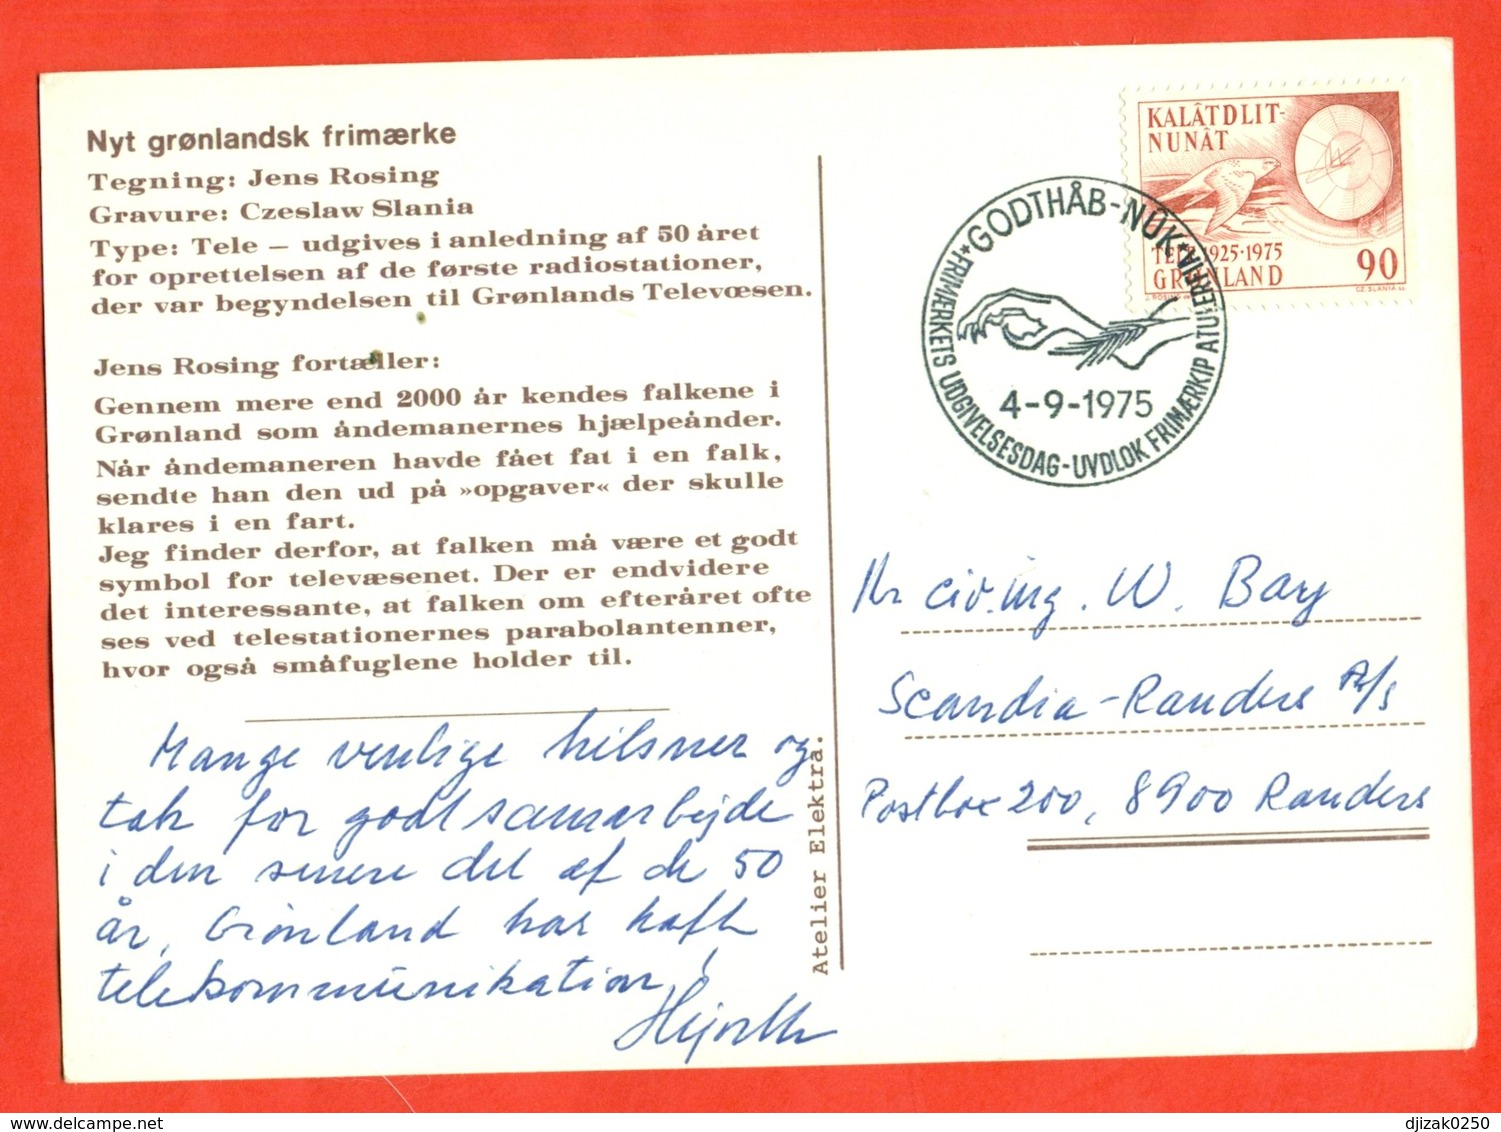 Nyt grønlandsk frimærke
Tegning: Jens Rosing
Gravure: Czeslaw Slania
Type: Tele – udgives i anledning af 50 året
for oprettelsen af de første radiostationer,
der var begyndelsen til Grønlands Televœsen.
Jens Rosing fortæller:
Gennem mere end 2000 år kendes falkene i
Grønland som åndemanernes hjælpeånder.
Når åndemaneren havde fået fat i en falk,
sendte han den ud på »opgaver« der skulle
klares i en fart.
Jeg finder derfor, at falken må være et godt
symbol for televæsenet. Der er endvidere
det interessante, at falken om efteråret ofte
ses ved telestationernes parabolantenner,
hvor også småfuglene holder til.
Mange venlige hilsner og
tak for godt samarbejde
i den senere del af de 50
år, Grönland har haft
telekommunikation,
Hjorth
Atelier Elektra.
KALÂTDLIT-
NUNÂT
TELE 1925·1975
GRØNLAND
90
J. ROSING
CZ. SLANIA sc.
*GODTHÅB-NÛK*
*FRIMÆRKETS UDGIVELSESDAG-UVDLOK FRIMÆRKIP ATULERFIA
4-9-1975
Hr civ.ing. W. Bary
Scandia-Randers A/s
Postbox 200, 8900 Randers
djizak0250